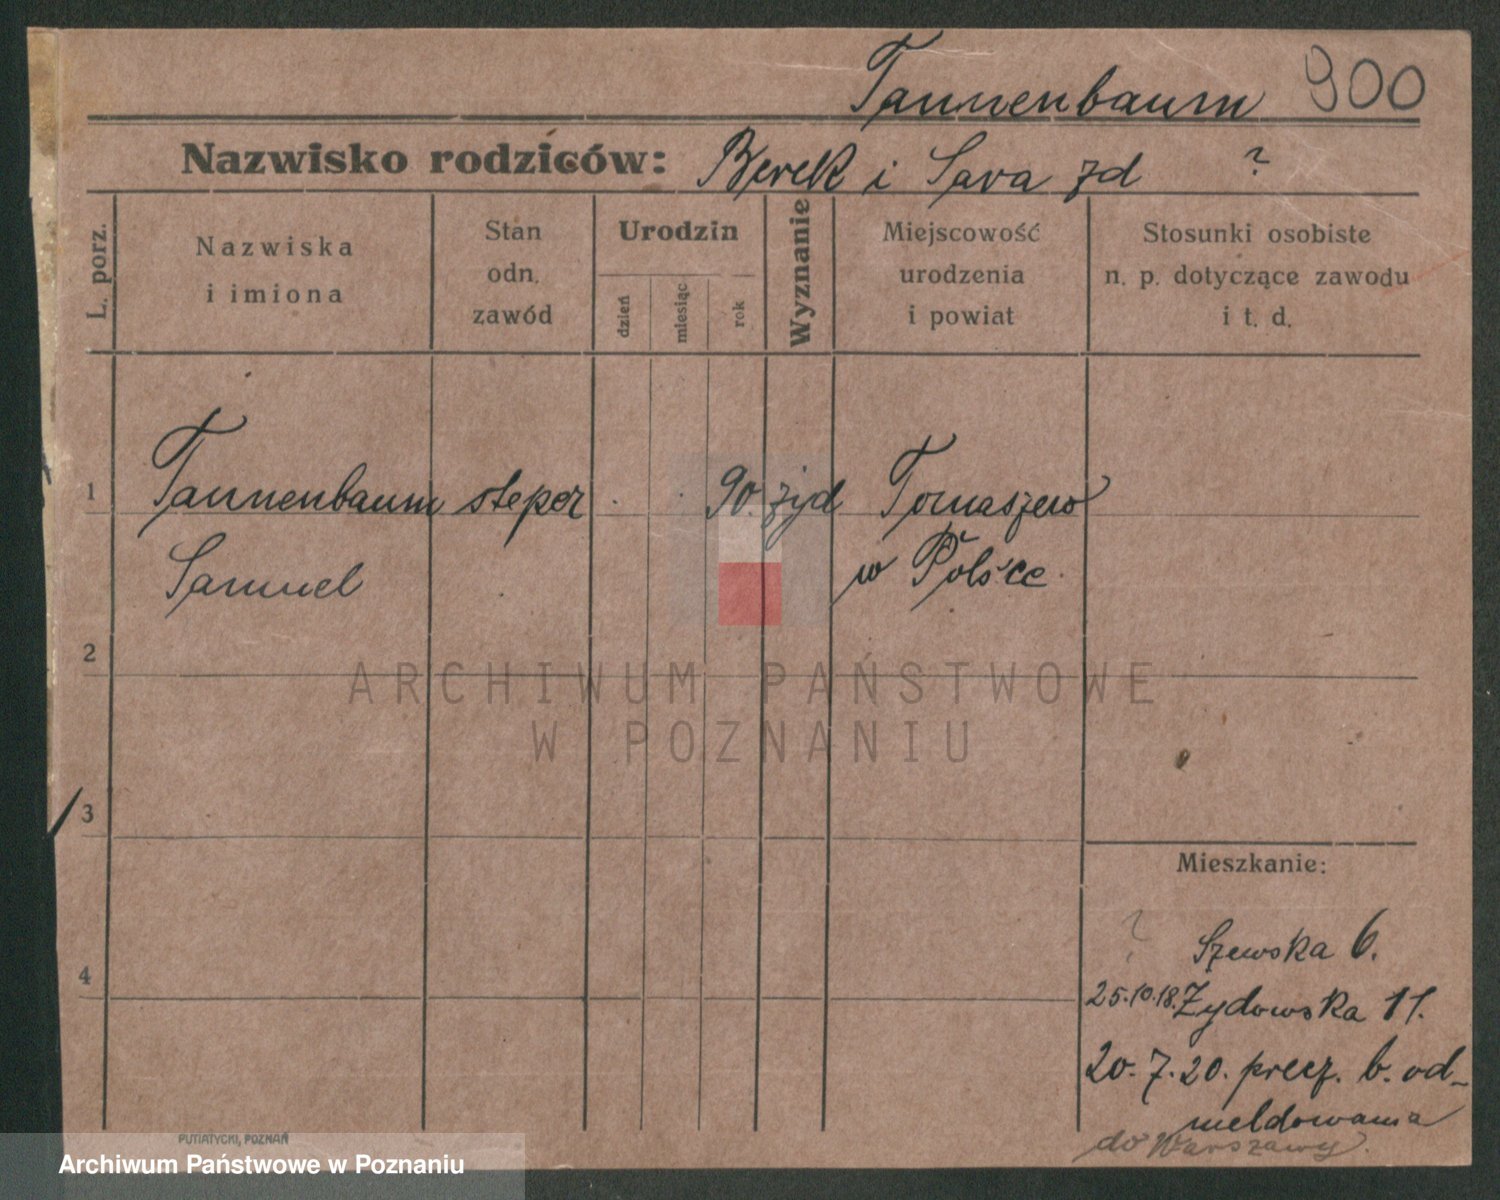 Tannenbaum 900
Nazwisko rodziców: Berek i Sara zd ?
L. porz.
Nazwiska
i imiona
Stan
odn.
zawód
Urodzin
dzień
miesiąc
rok
Wyznanie
Miejscowość
urodzenia
i powiat
Stosunki osobiste
n. p. dotyczące zawodu
i t. d.
1 Tannenbaum steper 90. żyd Tomaszew
Samuel w Polsce
2
ARCHIWUM PAŃSTWOWE
W POZNANIU
3
Mieszkanie:
? Szewska 6.
4
25.10.18. Żydowska 11.
20.7.20. precz. b. od-
meldowania
do Warszawy.
PUTIATYCKI, POZNAŃ
Archiwum Państwowe w Poznaniu